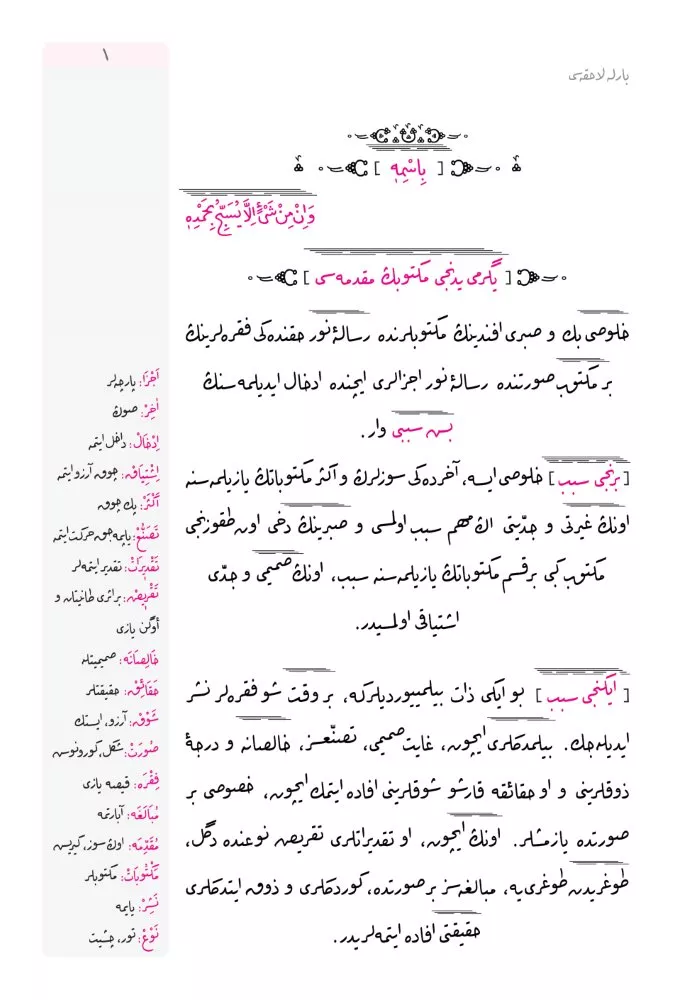 ١
بارله لاحقه‌سی
[ بِاسْمِهٖ ]
وَاِنْ مِنْ شَىْءٍ اِلَّا يُسَبِّحُ بِحَمْدِهٖ
[ یگرمی یدنجی مکتوبڭ مقدمه‌سی ]
خلوصی بك و صبری افندینڭ مکتوبلرنده رسالۀ نور حقنده‌کی فقره‌لرینڭ
بر مکتوب صورتنده رسالۀ نور اجزالری ایچنده ادخال ایدیلمه‌سنڭ
بش سببی وار.
[ برنجی سبب ] خلوصی ایسه، آخرده‌کی سوزلرڭ و اکثر مکتوباتڭ یازیلمه‌سنه
اونڭ غیرتی و جدّیتی اڭ مهم سبب اولمسی و صبرینڭ دخی اون طقوزنجی
مکتوب کبی بر قسم مکتوباتڭ یازیلمه‌سنه سبب، اونڭ صمیمی و جدّی
اشتیاقی اولمسیدر.
[ ایکنجی سبب ] بو ایکی ذات بیلمییوردیلرکه، بر وقت شو فقره‌لر نشر
ایدیله‌جك. بیلمدکلری ایچون، غایت صمیمی، تصنّعسز، خالصانه و درجۀ
ذوقلرینی و او حقائقه قارشو شوقلرینی افاده ایتمك ایچون، خصوصی بر
صورتده یازمشلر. اونڭ ایچون، او تقدیراتلری تقریض نوعنده دگل،
طوغریدن طوغری‌یه، مبالغه‌سز بر صورتده، کوردکلری و ذوق ایتدکلری
حقیقتی افاده ایتمه‌لریدر.
اَجْزَا: پارچه‌لر
اٰخِرْ: صوڭ
اِدْخَالْ: داخل ایتمه
اِشْتِیَاقْ: چوق آرزو ایتمه
اَکْثَرْ: پك چوق
تَصَنُّعْ: یاپمه‌جق حرکت ایتمه
تَقْدِیرَاتْ: تقدیر ایتمه‌لر
تَقْرِیضْ: بر اثری طانیتان و
اوگن یازی
خَالِصَانَه: صمیمیتله
حَقَائِقْ: حقیقتلر
شَوْقْ: آرزو، ایستك
صُورَتْ: شکل، کورونوش
فِقْرَه: قیصه یازی
مُبَالَغَه: آبارتمه
مُقَدِّمَه: اوڭ سوز، کیریش
مَکْتُوبَاتْ: مکتوبلر
نَشِرْ: یایمه
نَوْعْ: تور، چشیت